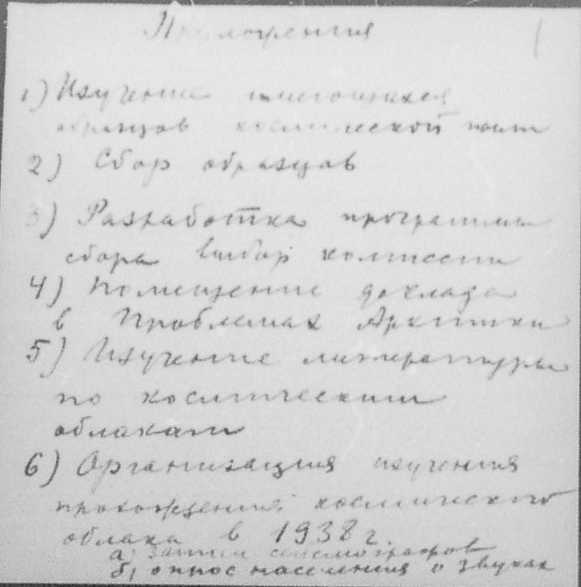 Предложения
1) Изучение имеющихся
образцов космической пыли
2) Сбор образцов
3) Разработка программы
сбора выбор комиссии
4) Помещение доклада
в Проблемах Арктики
5) Изучение литературы
по космическим
облакам
6) Организация изучения
прохождения космического
облака в 1938 г.
а) записи сейсмографов
б) опрос населения о звуках